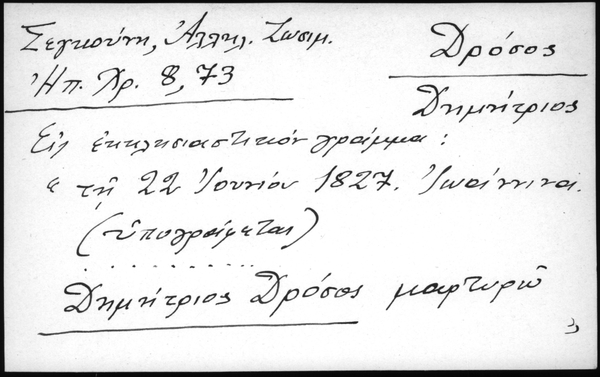 Σεγκούνη, Ἀλληλ. Ζωσιμ.
Ἠπ. Χρ. 8, 73
Δρόσος
Δημήτριος
Εἰς ἐκκλησιαστικόν γράμμα:
"τῇ 22 Ἰουνίου 1827. Ἰωάννινα.
(ὑπογράφεται)
. . . . . . . . . .
Δημήτριος Δρόσος μαρτυρῶ